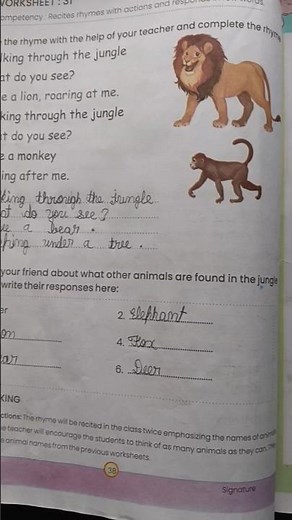 WORKSHEET : 31
ompetency : Recites rhymes with actions and
the rhyme with the help of your teacher and complete the rhyme
lking through the jungle
at do you see?
e a lion, roaring at me.
king through the jungle
t do you see?
e a monkey
ing after me.
king through the jungle
at do you see?
ee a bear.
ping under a tree.
your friend about what other animals are found in the jungle
write their responses here:
er
2. Elephant
on
4. Fox
ear
6. Deer
KING
ctions: The rhyme will be recited in the class twice emphasizing the names of animals
e teacher will encourage the students to think of as many animals as they can. The
e animal names from the previous worksheets.
38
Signature